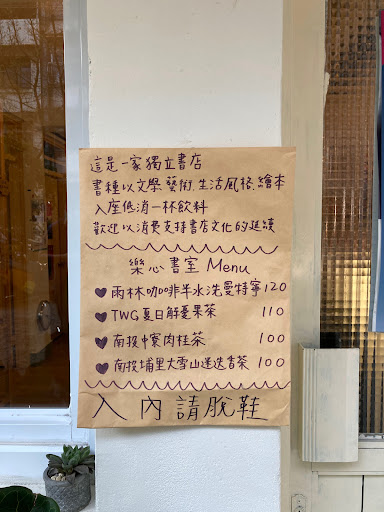 這是一家獨立書店
書種以文學、藝術、生活風格、繪本
入座低消一杯飲料
歡迎以消費支持書店文化的延續
樂心書室 Menu
雨林咖啡半水洗曼特寧 120
TWG夏日解憂果茶 110
南投中寮肉桂茶 100
南投埔里大雪山迷迭香茶 100
入內請脫鞋